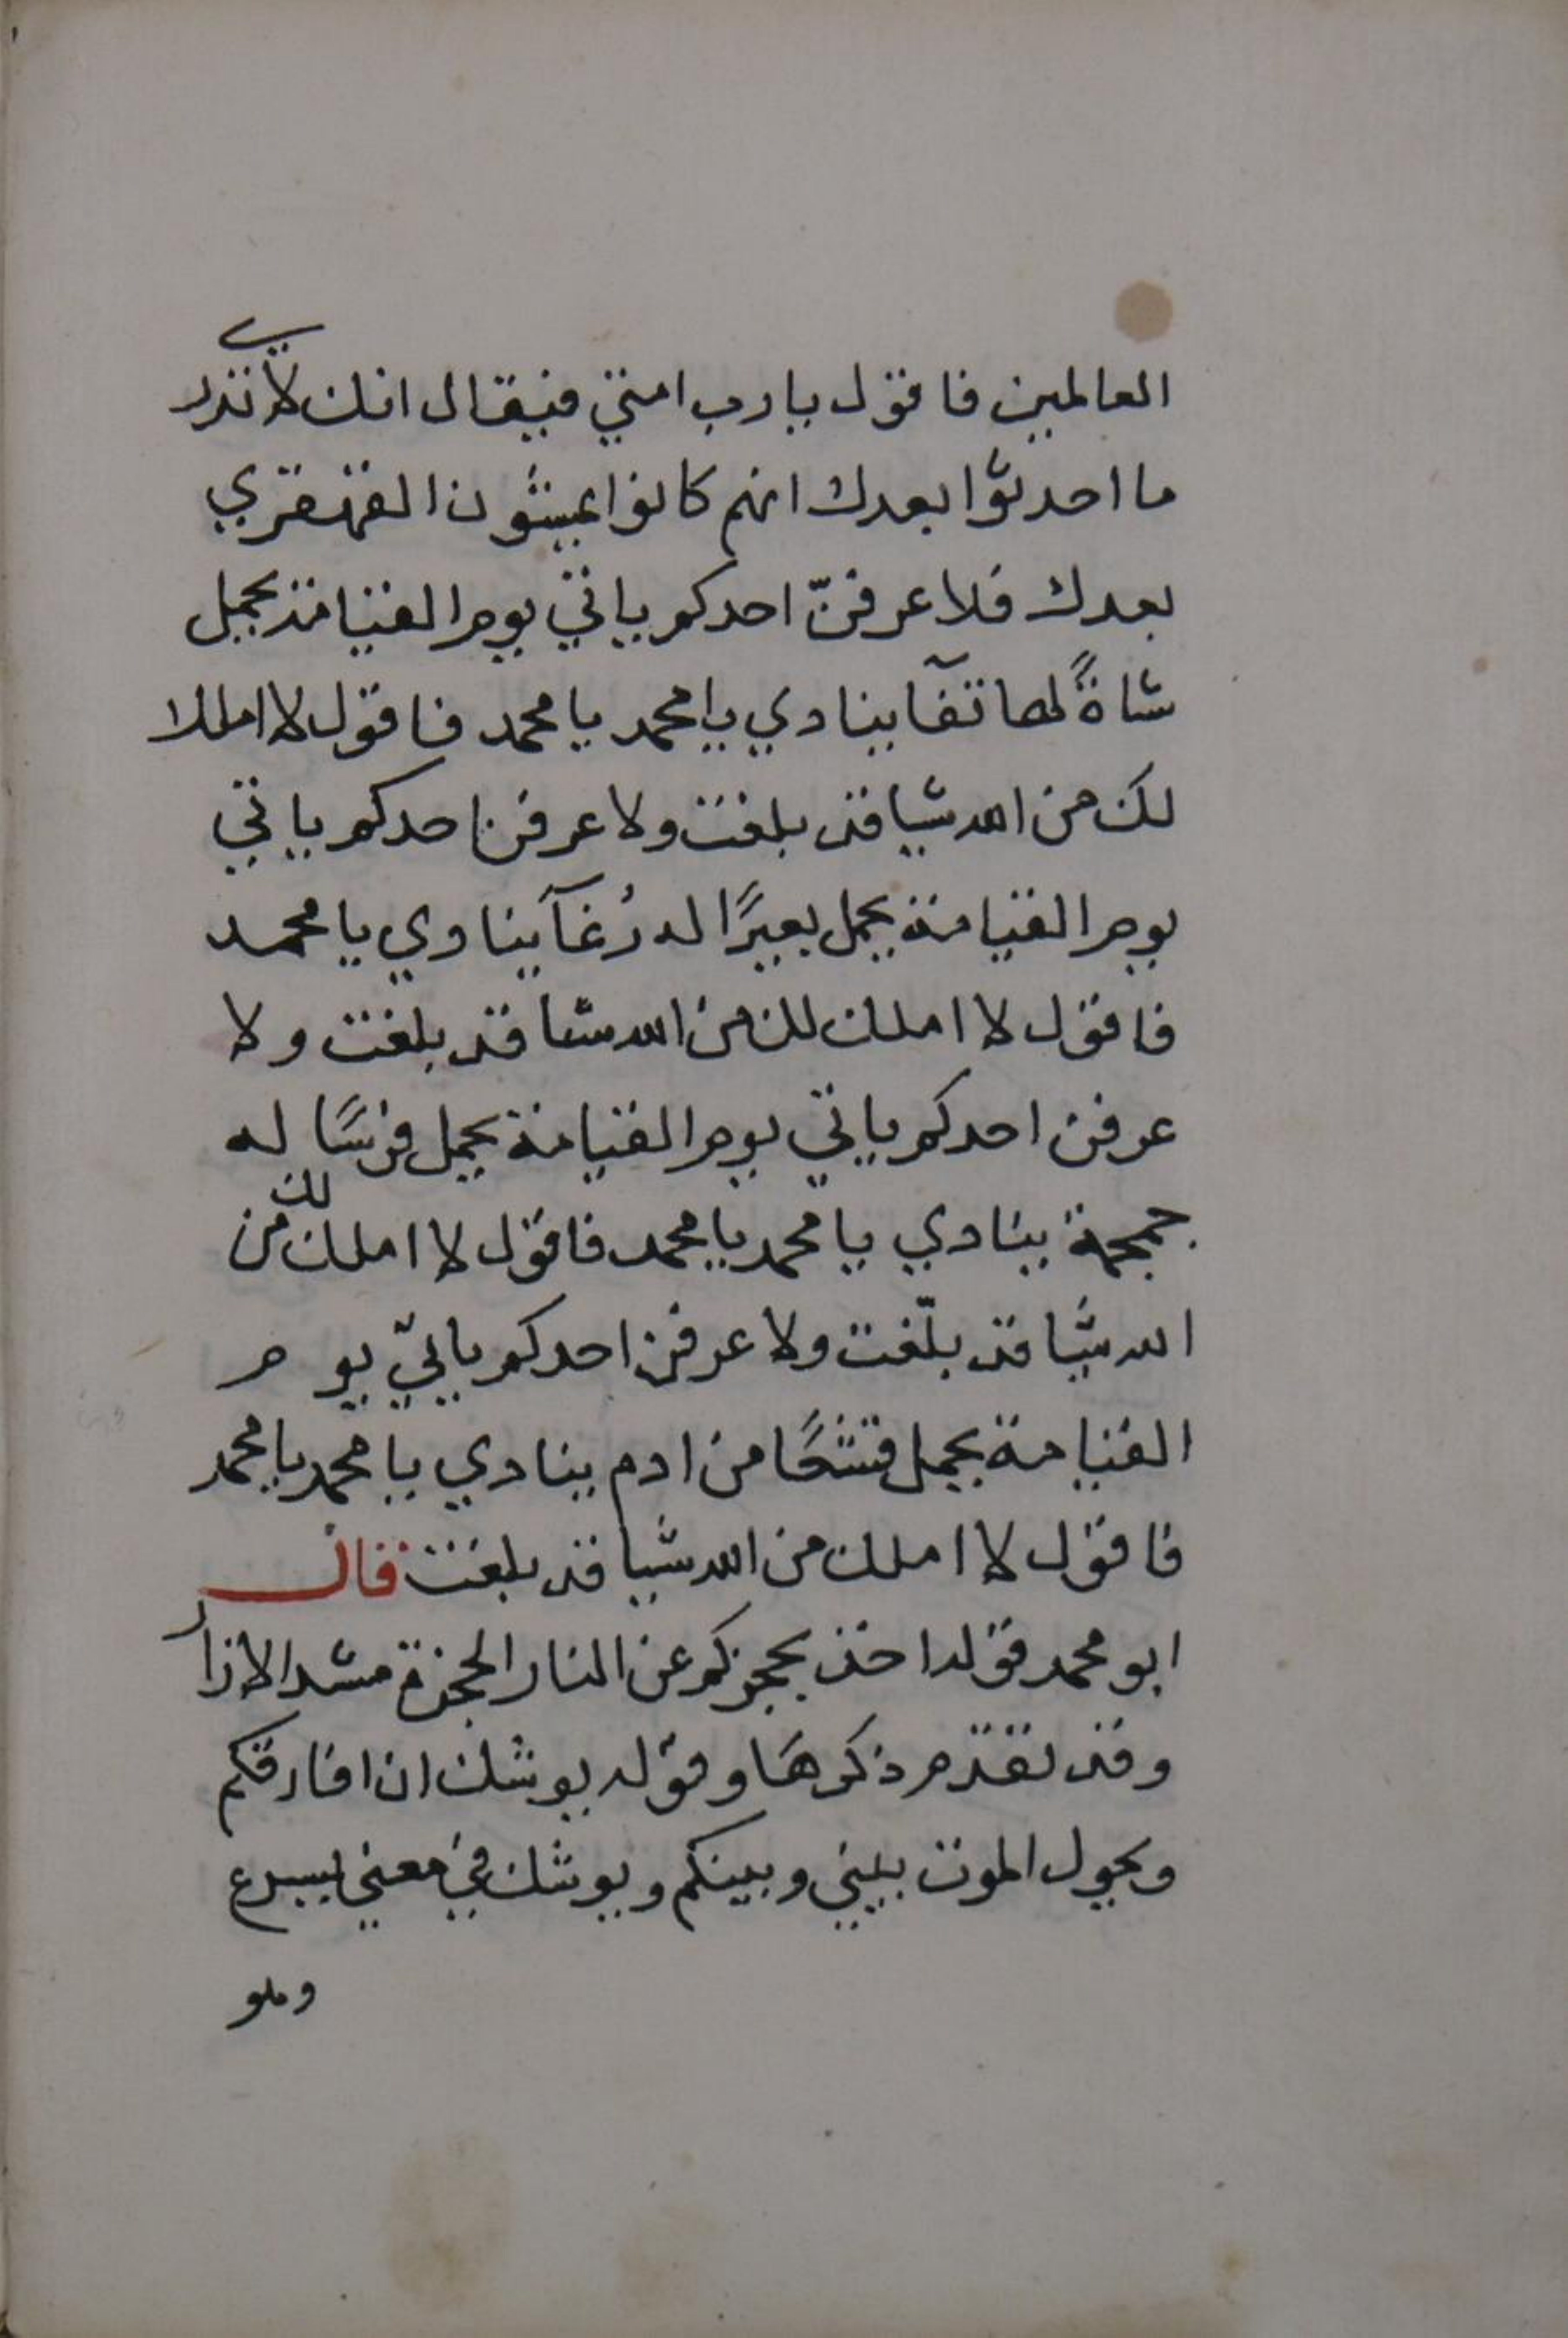 العالمين فاقول يا رب امتي فيقال انك لا تدري
ما احدثوا بعدك انهم كانوا يمشون القهقري
بعدك فلا عرفنّ احدكم ياتي يوم القيامة يحمل
شاةً لها ثغآ ينادي يا محمد يا محمد فاقول لا املك
لك من الله شيا قد بلغت ولا عرفن احدكم ياتي
يوم القيامة يحمل بعيرًا له رُغآ ينادي يا محمد
فاقول لا املك لك من الله شيا قد بلغت ولا
عرفن احدكم ياتي يوم القيامة يحمل فرسًا له
حمحمة ينادي يا محمد يا محمد فاقول لا املك لك من
الله شيا قد بلّغت ولا عرفن احدكم ياتي يوم
القيامة يحمل قشعًا من ادم ينادي يا محمد يا محمد
فاقول لا املك من الله شيا قد بلغت قال
ابو محمد قوله اخذ بحجزكم عن النار الحجزة مشد الازار
وقد تقدم ذكرها وقوله يوشك ان افارقكم
ويحول الموت بيني وبينكم ويوشك في معني يسرع
وهو